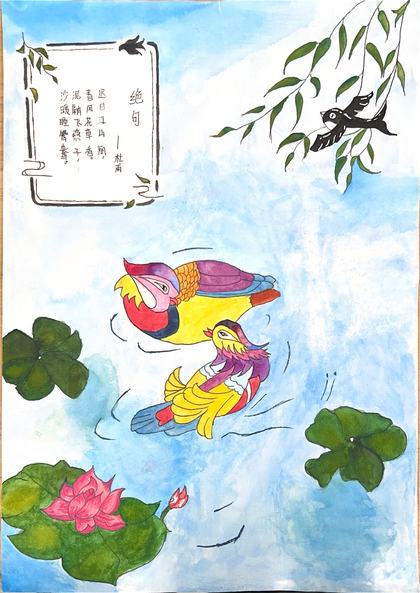 绝句
—杜甫
迟日江山丽，
春风花草香。
泥融飞燕子，
沙暖睡鸳鸯。